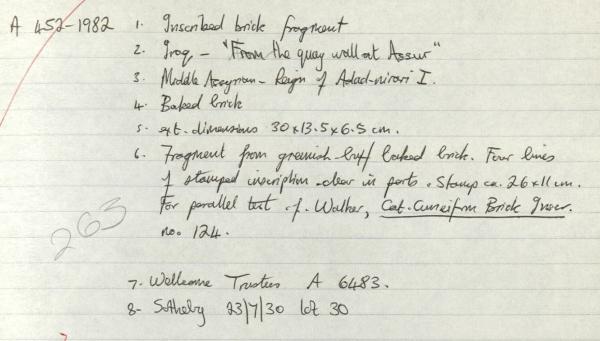 A 452-1982 1. Inscribed brick fragment
2. Iraq - "From the quay wall at Assur"
3. Middle Assyrian - Reign of Adad-nirari I.
4. Baked brick
5. ext. dimensions 30 x 13.5 x 6.5 cm.
6. Fragment from greenish-buff baked brick. Four lines
of stamped inscription - clear in parts. Stamp ca. 26 x 11 cm.
For parallel text cf. Walker, Cat. Cuneiform Brick Inscr.
no. 124.
263
7. Wellcome Trustees A 6483.
8. Sotheby 23/7/30 lot 30